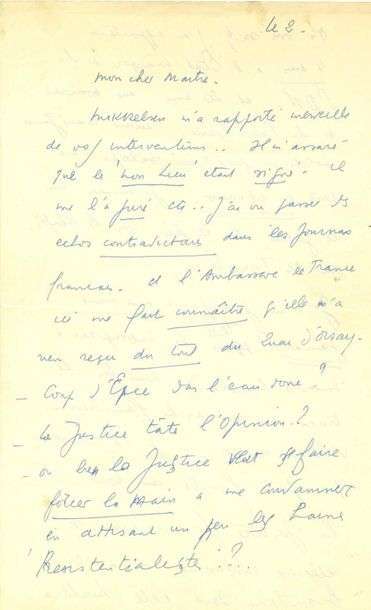 le 2.
Mon cher Maitre.
Mikkelsen m'a rapporté merveille
de vos interventions.. Il m'assuré
que le "non lieu" était signé. il
me l'a juré etc.. J'ai vu passer des
echos contradictoires dans les Journaux
français. et l'Ambassade de France
ici me fait connaître qu'elle n'a
rien reçu du tout du Quai d'Orsay.
— Coup d'Epée dans l'eau donc ?
— La Justice tâte l'Opinion ?
— ou bien la Justice veut se faire
forcer la main à me condamner
en attisant un peu les
Resistentialistes ? ..